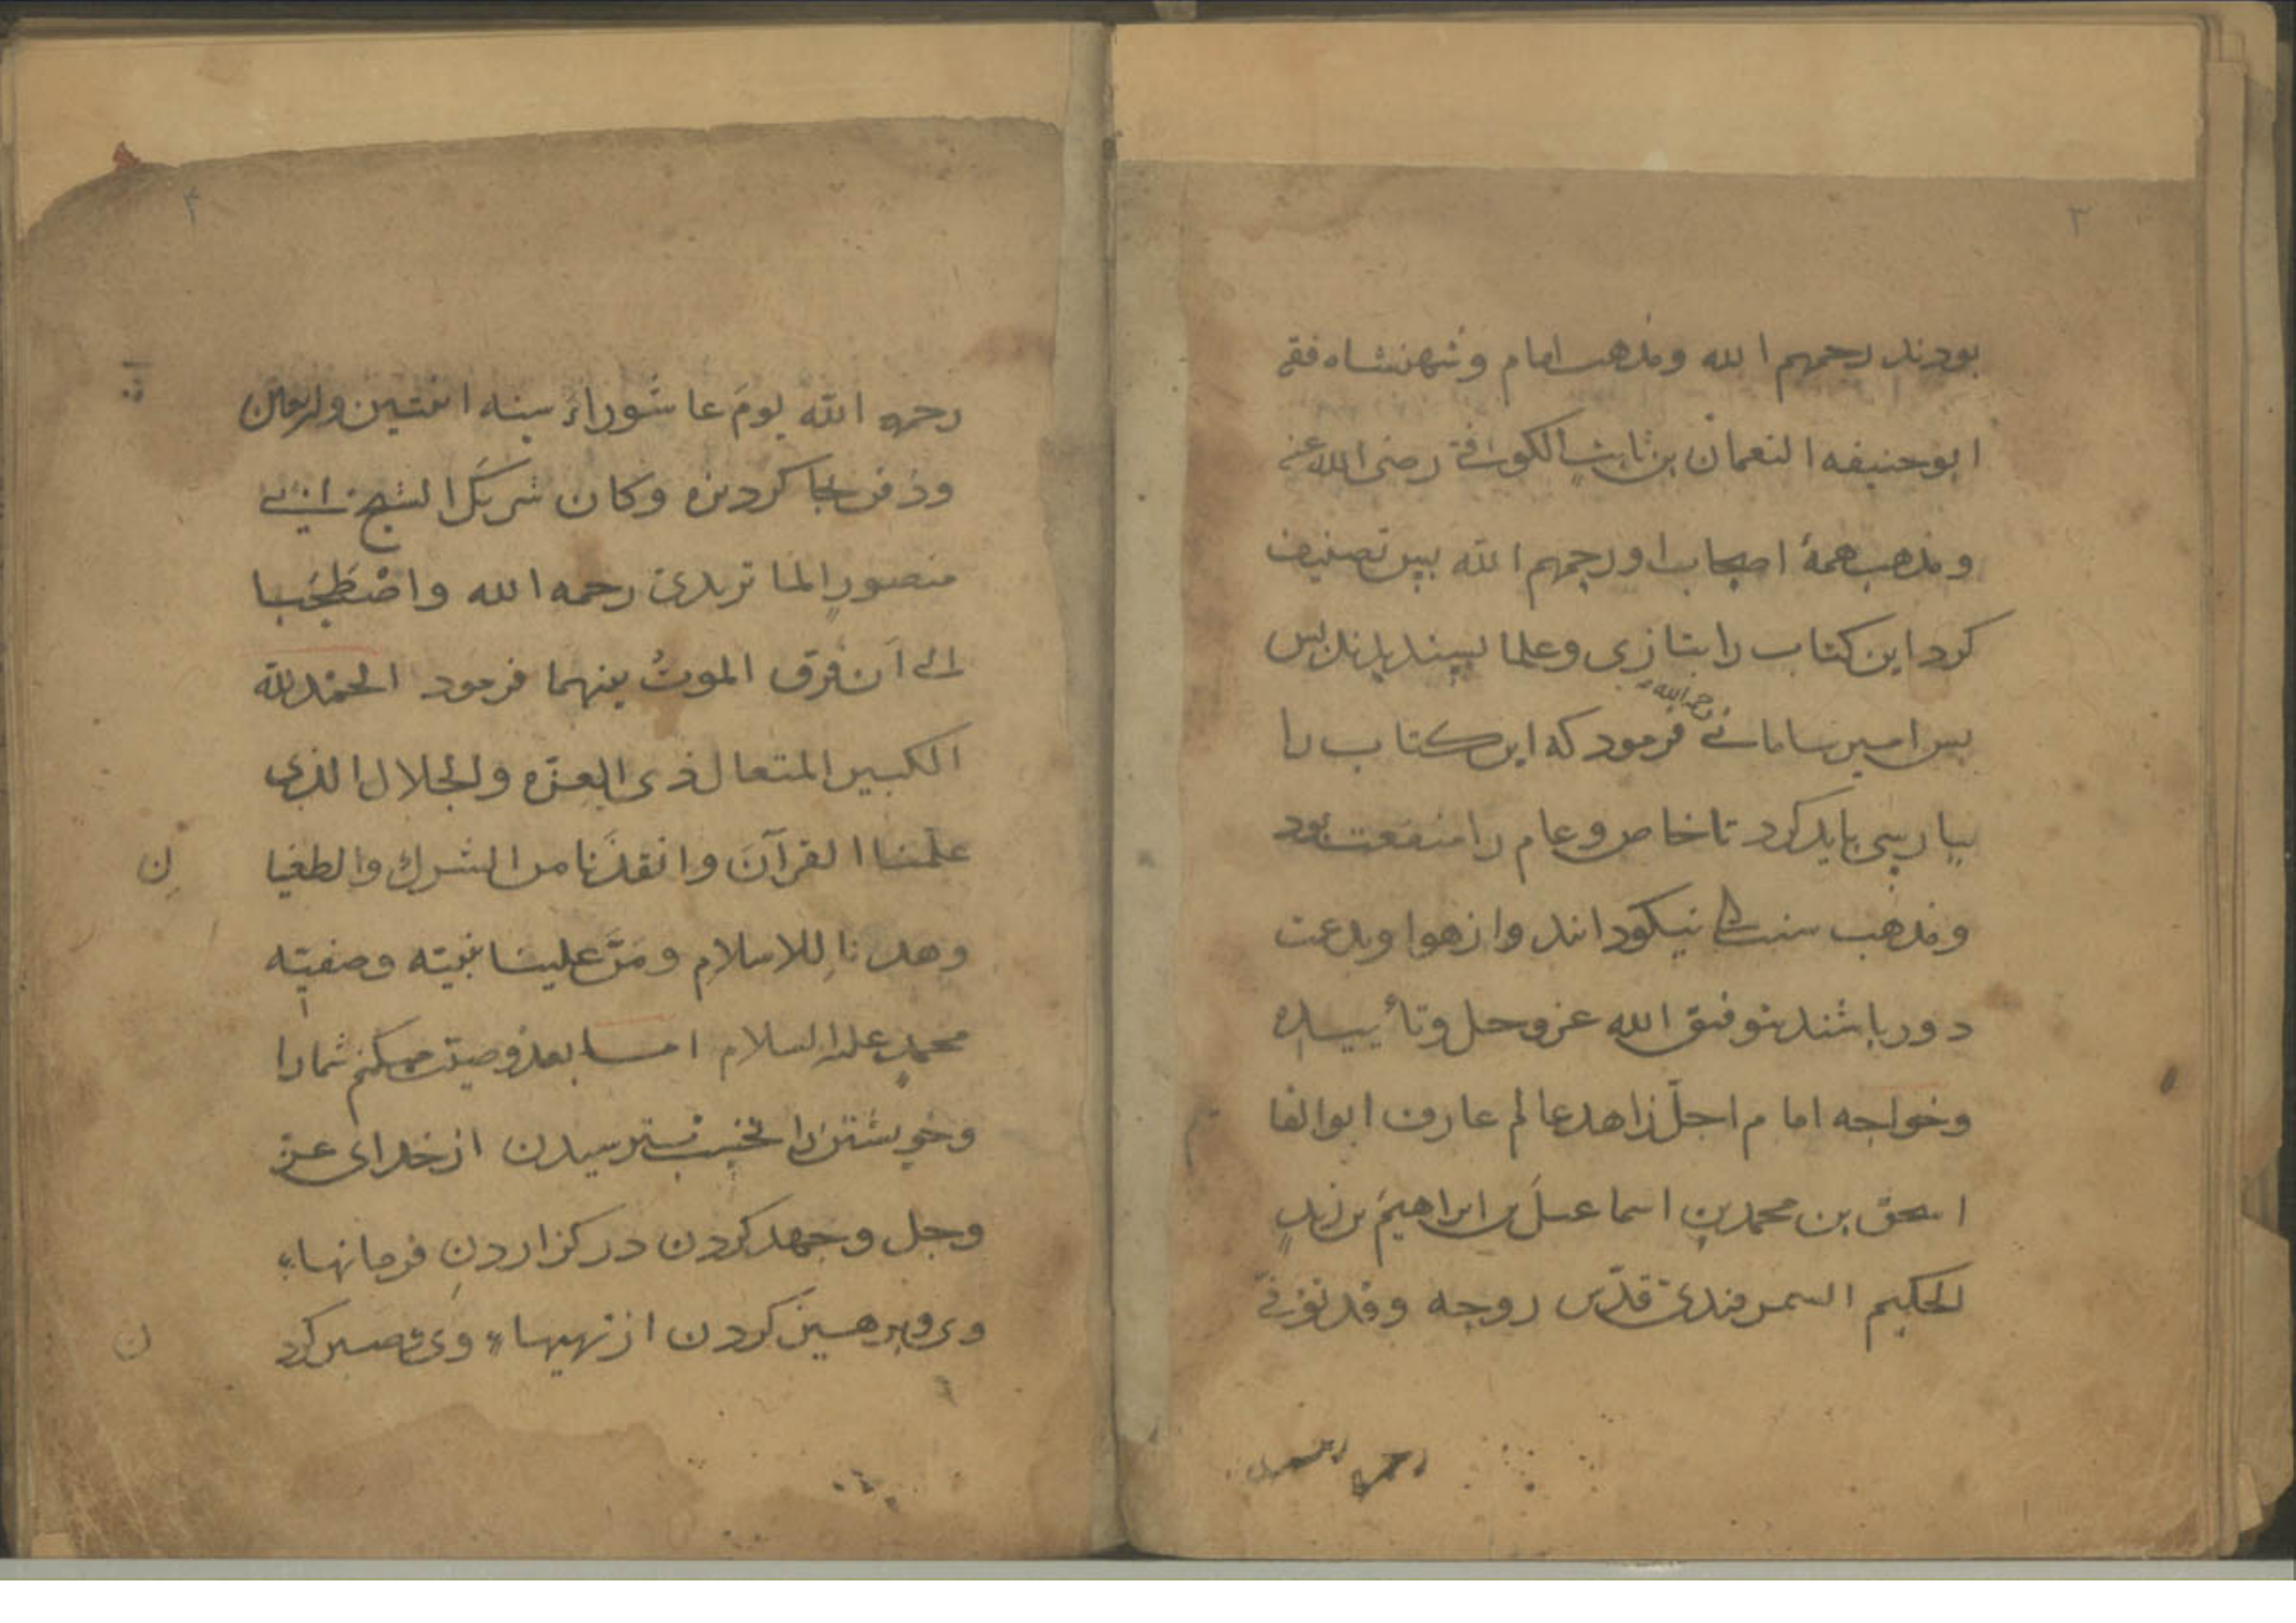 ٣
بودند رحمهم الله ومذهب امام وشهنشاه فقه
ابو حنیفه النعمان بن ثابت الکوفی رضی الله عنه
ومذهب همهٔ اصحاب او رحمهم الله پس تصنیف
کرد این کتاب را بتازی وعلما بپسندیدند پس
پس امیر سامانی رحمه الله فرمود که این کتاب را
بپارسی باید کرد تا خاص وعام را منفعت بود
ومذهب سنت را نیکو دانند واز هوا وبدعت
دور باشند بتوفیق الله عز وجل وتأییده
وخواجه امام اجلّ زاهد عالم عارف ابو القا
سم
اسحق بن محمد بن اسماعیل بن ابراهیم بن زید
الحکیم السمرقندی قدّس روحه وقد توفی
٤
رحمه الله یومَ عاشوراءَ سنه اثنتین واربعین
ودفن بجاکردیزه وکان شریکَ الشیخ ابی
منصورِ الماتریدی رحمه الله واصْطَحَبا
الی اَن فرق الموتُ بینهما فرمود الحمْد لله
الکبیر المتعال ذی العزه والجلال الذی
علّمنا القرآنَ وانقذَنا من الشرک والطغیا
ن
وهدانا للاسلام ومَنَّ علینا بنبیّه وصفیّه
محمدٍ علیه السلام اما بعد وصیّت میکنم شما را
وخویشتن را نخست بترسیدن از خدای عزّ
وجل وجهد کردن در گزاردنِ فرمانهاء
وی وپرهیز کردن از نهیهاء وی وصبر کرد
ن